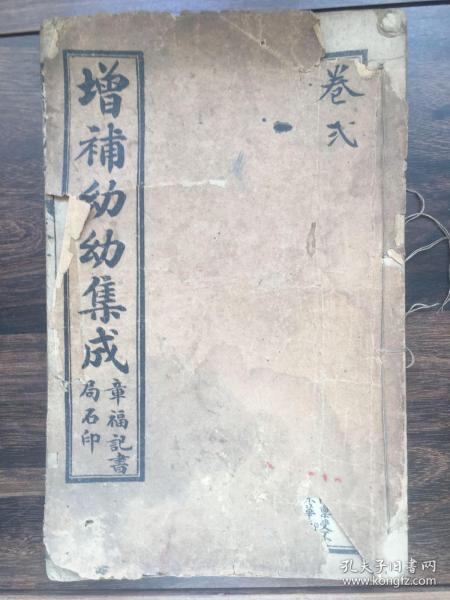 卷弍
增補幼幼集成
章福記書
局石印
孔夫子旧书网
www.kongfz.com